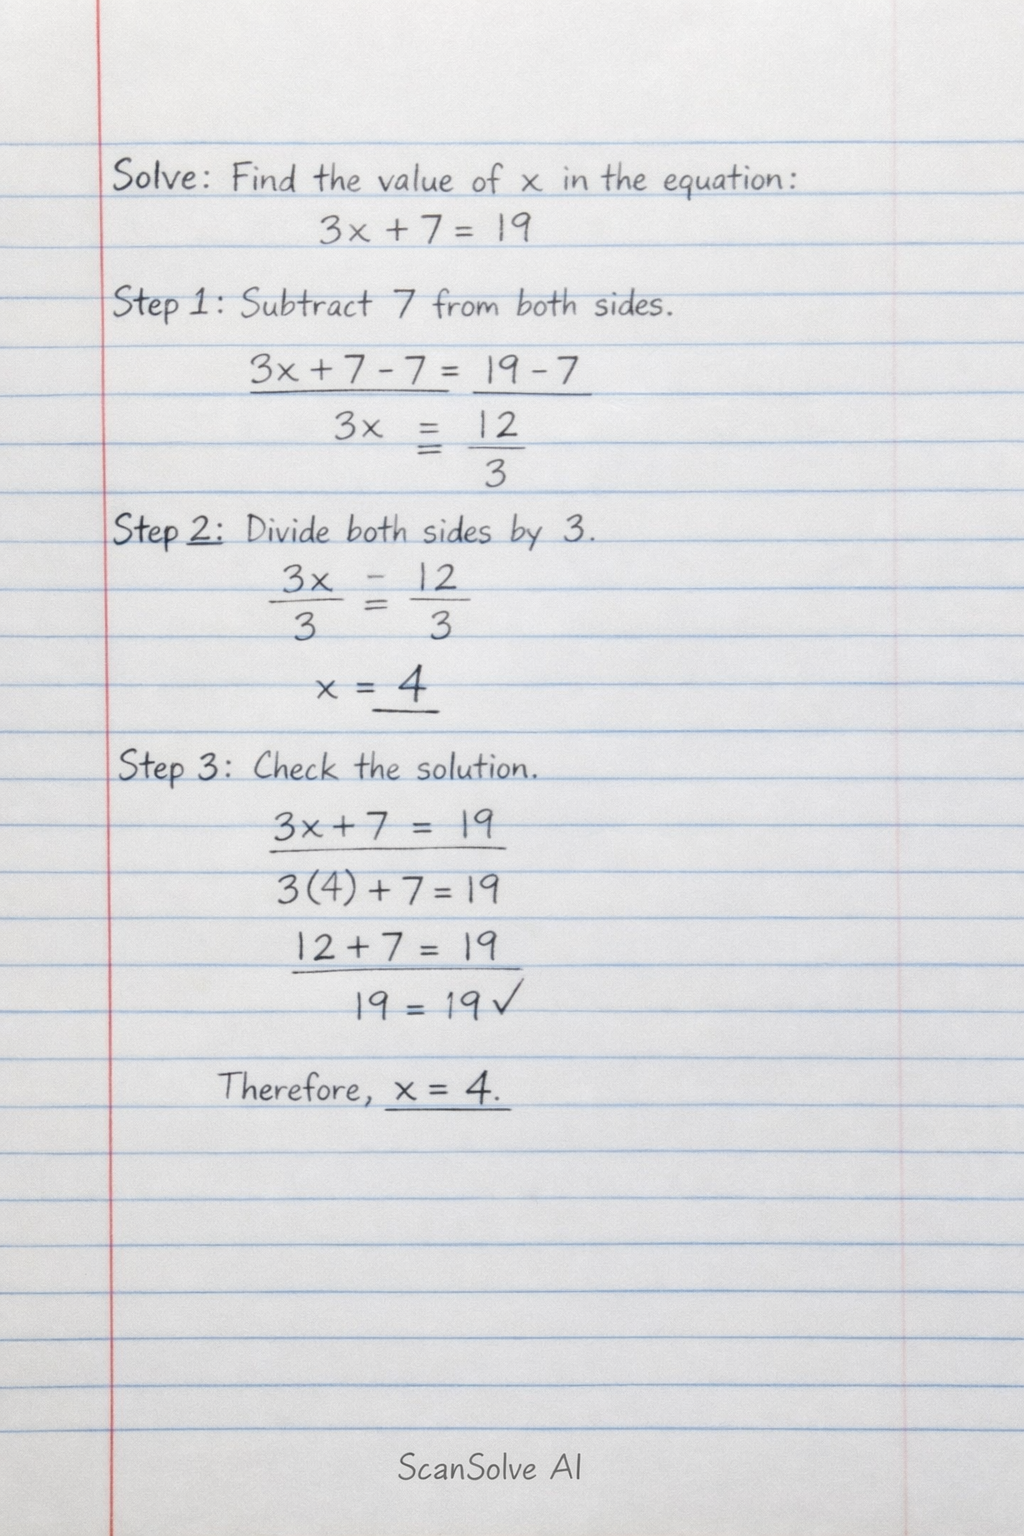 Solve: Find the value of x in the equation:
3x + 7 = 19
Step 1: Subtract 7 from both sides.
3x + 7 - 7 = 19 - 7
3x = 12
3
Step 2: Divide both sides by 3.
3x = 12
3 3
x = 4
Step 3: Check the solution.
3x + 7 = 19
3(4) + 7 = 19
12 + 7 = 19
19 = 19 ✓
Therefore, x = 4.
ScanSolve AI